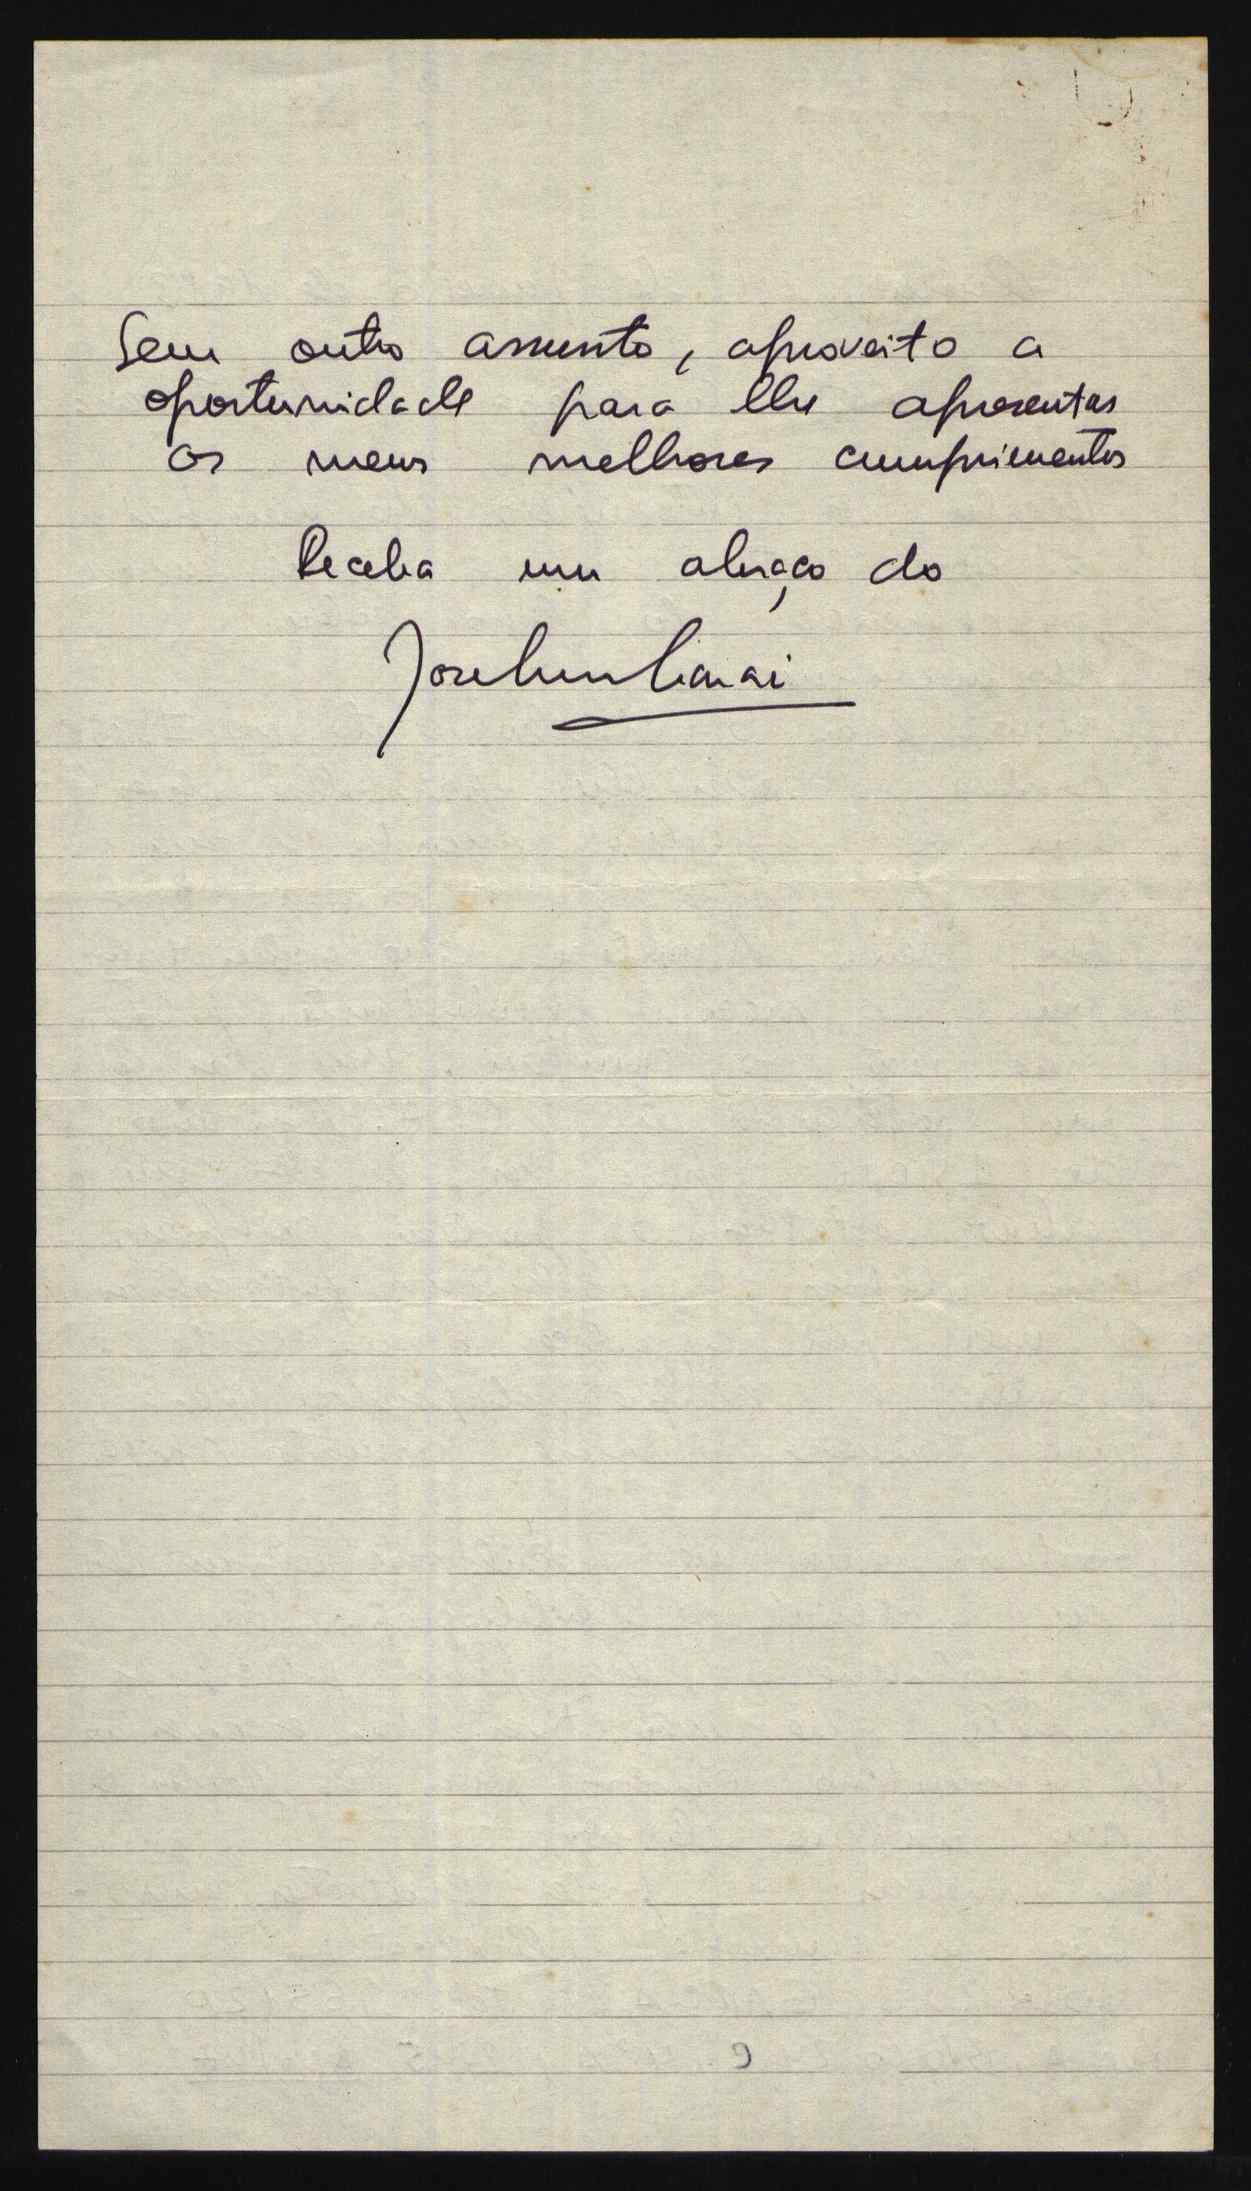 Sem outro assunto, aproveito a
oportunidade para lhe apresentar
os meus melhores cumprimentos
Receba um abraço do
9